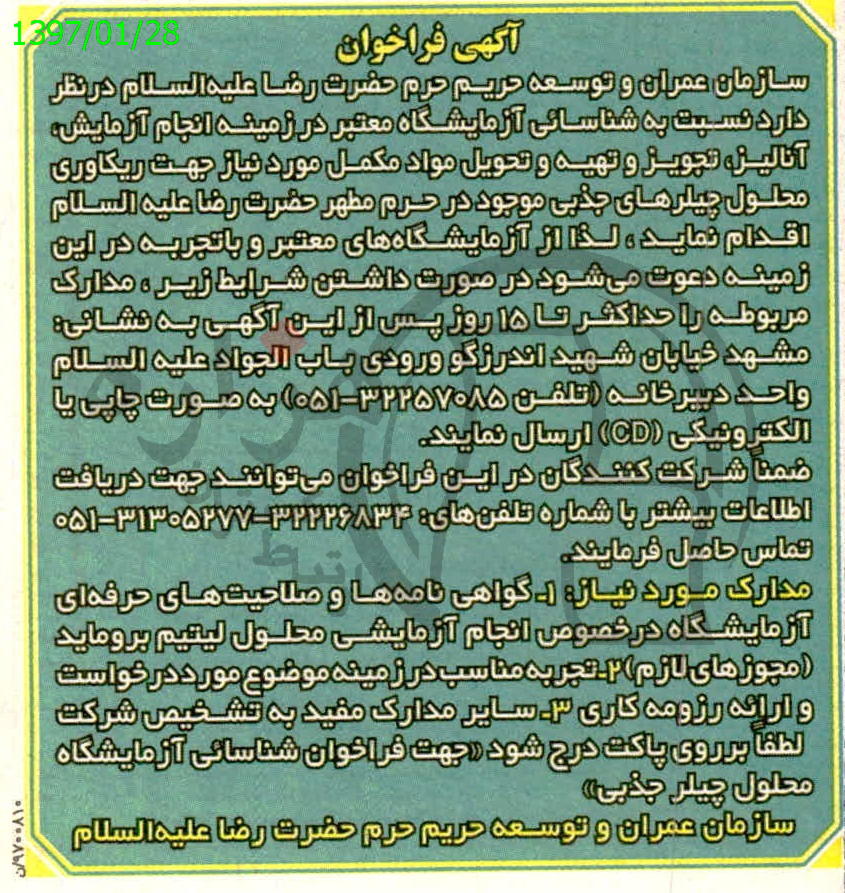 1397/01/28
آگهی فراخوان
سازمان عمران و توسعه حریم حرم حضرت رضا علیه‌السلام درنظر
دارد نسبت به شناسائی آزمایشگاه معتبر در زمینه انجام آزمایش،
آنالیز، تجویز و تهیه و تحویل مواد مکمل مورد نیاز جهت ریکاوری
محلول چیلرهای جذبی موجود در حرم مطهر حضرت رضا علیه السلام
اقدام نماید ، لذا از آزمایشگاه‌های معتبر و باتجربه در این
زمینه دعوت می‌شود در صورت داشتن شرایط زیر ، مدارک
مربوطه را حداکثر تا ۱۵ روز پس از این آگهی به نشانی:
مشهد خیابان شهید اندرزگو ورودی باب الجواد علیه السلام
واحد دبیرخانه (تلفن ۳۲۲۵۷۰۸۵-۰۵۱) به صورت چاپی یا
الکترونیکی (CD) ارسال نمایند.
ضمناً شرکت کنندگان در این فراخوان می‌توانند جهت دریافت
اطلاعات بیشتر با شماره تلفن‌های: ۳۲۲۲۶۸۳۴-۳۱۳۰۵۲۷۷-۰۵۱
تماس حاصل فرمایند.
مدارک مورد نیاز: ۱ـ گواهی نامه‌ها و صلاحیت‌های حرفه‌ای
آزمایشگاه درخصوص انجام آزمایشی محلول لیتیم بروماید
(مجوزهای لازم) ۲ـ تجربه مناسب در زمینه موضوع مورد درخواست
و ارائه رزومه کاری ۳ـ سایر مدارک مفید به تشخیص شرکت
لطفاً برروی پاکت درج شود «جهت فراخوان شناسائی آزمایشگاه
محلول چیلر جذبی»
سازمان عمران و توسعه حریم حرم حضرت رضا علیه‌السلام
۹۷۰۰۸۱۰/ن